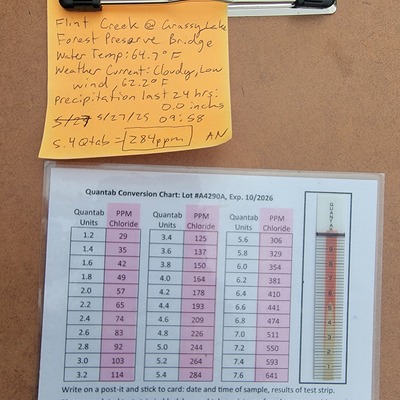 Flint Creek @ Grassy Lake
Forest Preserve Bridge
Water Temp: 64.7° F
Weather Current: Cloudy, Low
wind, 62.2° F
Precipitation last 24 hrs:
0.0 inches
5/27 5/27/25 09:58
5.4 Qtab = 284 ppm AN
Quantab Conversion Chart: Lot #A4290A, Exp. 10/2026
Quantab Units PPM Chloride Quantab Units PPM Chloride Quantab Units PPM Chloride
1.2 29 3.4 125 5.6 306
1.4 35 3.6 137 5.8 329
1.6 42 3.8 150 6.0 354
1.8 49 4.0 164 6.2 381
2.0 57 4.2 178 6.4 410
2.2 65 4.4 193 6.6 441
2.4 74 4.6 209 6.8 474
2.6 83 4.8 226 7.0 511
2.8 92 5.0 244 7.2 550
3.0 103 5.2 264 7.4 593
3.2 114 5.4 284 7.6 641
QUANTAB
9
8
7
6
5
4
3
2
1
Write on a post-it and stick to card: date and time of sample, results of test strip.